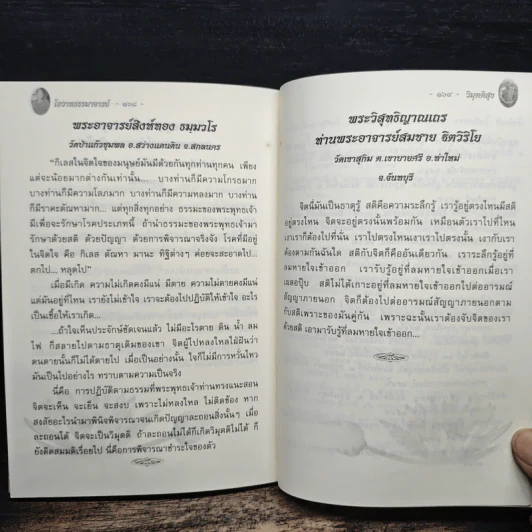 โอวาทธรรมาจารย์ - ๑๖๘ -
พระอาจารย์สิงห์ทอง ธมฺมวโร
วัดป่าแก้วชุมพล อ.สว่างแดนดิน จ.สกลนคร
"กิเลสในจิตใจของมนุษย์มันมีด้วยกันทุกท่านทุกคน เพียง
แต่จะน้อยมากต่างกันเท่านั้น... บางท่านก็มีความโกรธมาก
บางท่านก็มีความโลภมาก บางท่านก็มีความหลงมาก บางท่าน
ก็มีราคะตัณหามาก... แต่ทุกสิ่งทุกอย่าง ธรรมะของพระพุทธเจ้า
มีเพื่อจะรักษาโรคประเภทนี้ ถ้านำธรรมะของพระพุทธเจ้ามา
รักษาด้วยสติ ด้วยปัญญา ด้วยการพิจารณาจริงจัง โรคที่มีอยู่
ในจิตใจ คือ กิเลส ตัณหา มานะ ทิฐิต่างๆ ค่อยจะสะอาดไป...
ตกไป... หลุดไป"
เมื่อมีเกิด ความไม่เกิดคงมีแน่ มีตาย ความไม่ตายคงมีแน่
แต่มันอยู่ที่ไหน เรายังไม่เข้าใจ เราจะต้องไปปฏิบัติให้เข้าใจ อะไร
เป็นเชื้อให้เราเกิด...
...ถ้าใจเห็นประจักษ์ชัดเจนแล้ว ไม่มีอะไรตาย ดิน น้ำ ลม
ไฟ ก็สลายไปตามธาตุเดิมของเขา จิตผู้ไปหลงใหลใฝ่ฝันว่า
ตนตายนั้นก็ไม่ได้ตายไป เมื่อเป็นอย่างนั้น ใจก็ไม่มีการหวั่นไหว
มันเป็นไปอย่างไร ทราบตามความเป็นจริง
นี่คือ การปฏิบัติตามธรรมที่พระพุทธเจ้าท่านทรงแนะสอน
จิตจะเห็น จะเย็น จะสงบ เพราะไม่หลงใหล ไม่ขัดข้อง หาก
สงสัยอะไรนำมาพินิจพิจารณาจนเกิดปัญญาละถอนสิ่งนั้นๆ เมื่อ
ละถอนได้ จิตจะเป็นวิมุตติ ถ้าละถอนไม่ได้ก็เกิดวิมุตติไม่ได้ ก็
ยังติดสมมติเรื่อยไป นี่คือการพิจารณาชำระใจของตัว
- ๑๖๙ - วิมุตติสุข
พระวิสุทธิญาณเถร
ท่านพระอาจารย์สมชาย ฐิตวิริโย
วัดเขาสุกิม ต.เขาบายศรี อ.ท่าใหม่
จ.จันทบุรี
จิตนี้มันเป็นธาตุรู้ สติคือความระลึกรู้ เรารู้อยู่ตรงไหนมีสติ
อยู่ตรงไหน จิตจะอยู่ตรงนั้นพร้อมกัน เหมือนตัวเราไปที่ไหน
เงาเราก็ต้องไปที่นั่น เราไปตรงไหนเงาเราไปตรงนั้น เงากับเรา
ต้องตามกันฉันใด สติกับจิตก็คืออันเดียวกัน เราระลึกรู้อยู่ที่
ลมหายใจเข้าออก เรารับรู้อยู่ที่ลมหายใจเข้าออกเมื่อเรา
เผลอปุ๊บ สติไม่ได้เกาะอยู่ที่ลมหายใจเข้าออกไปต่ออารมณ์
สัญญาภายนอก จิตก็ต้องไปต่ออารมณ์สัญญาภายนอกตาม
กับสติเพราะของมันคู่กัน เพราะฉะนั้นเราต้องจับจิตของเรา
ด้วยสติ เอามารับรู้ที่ลมหายใจเข้าออก...